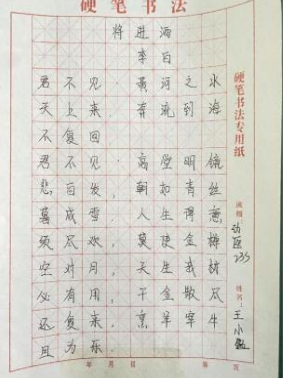 硬笔书法
将进酒
李白
君不见,黄河之水
天上来,奔流到海
不复回
君不见,高堂明镜
悲白发,朝如青丝
暮成雪,人生得意
须尽欢,莫使金樽
空对月,天生我材
必有用,千金散尽
还复来,烹羊宰牛
且为乐.
硬笔书法专用纸
班级:动医235
姓名:王小
年 月 日 第 页